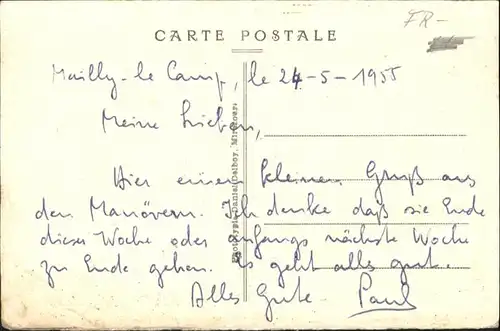 FR-
CARTE POSTALE
Mailly-le Camp, le 24-5-1955
Meine Lieben,
Hier einen kleinen Gruß aus
den Manövern. Ich denke daß sie Ende
dieser Woche oder anfangs nächste Woche
zu Ende gehen. Es geht alles gut.
Alles Gute Paul
Daniel Delboy, Mirecourt